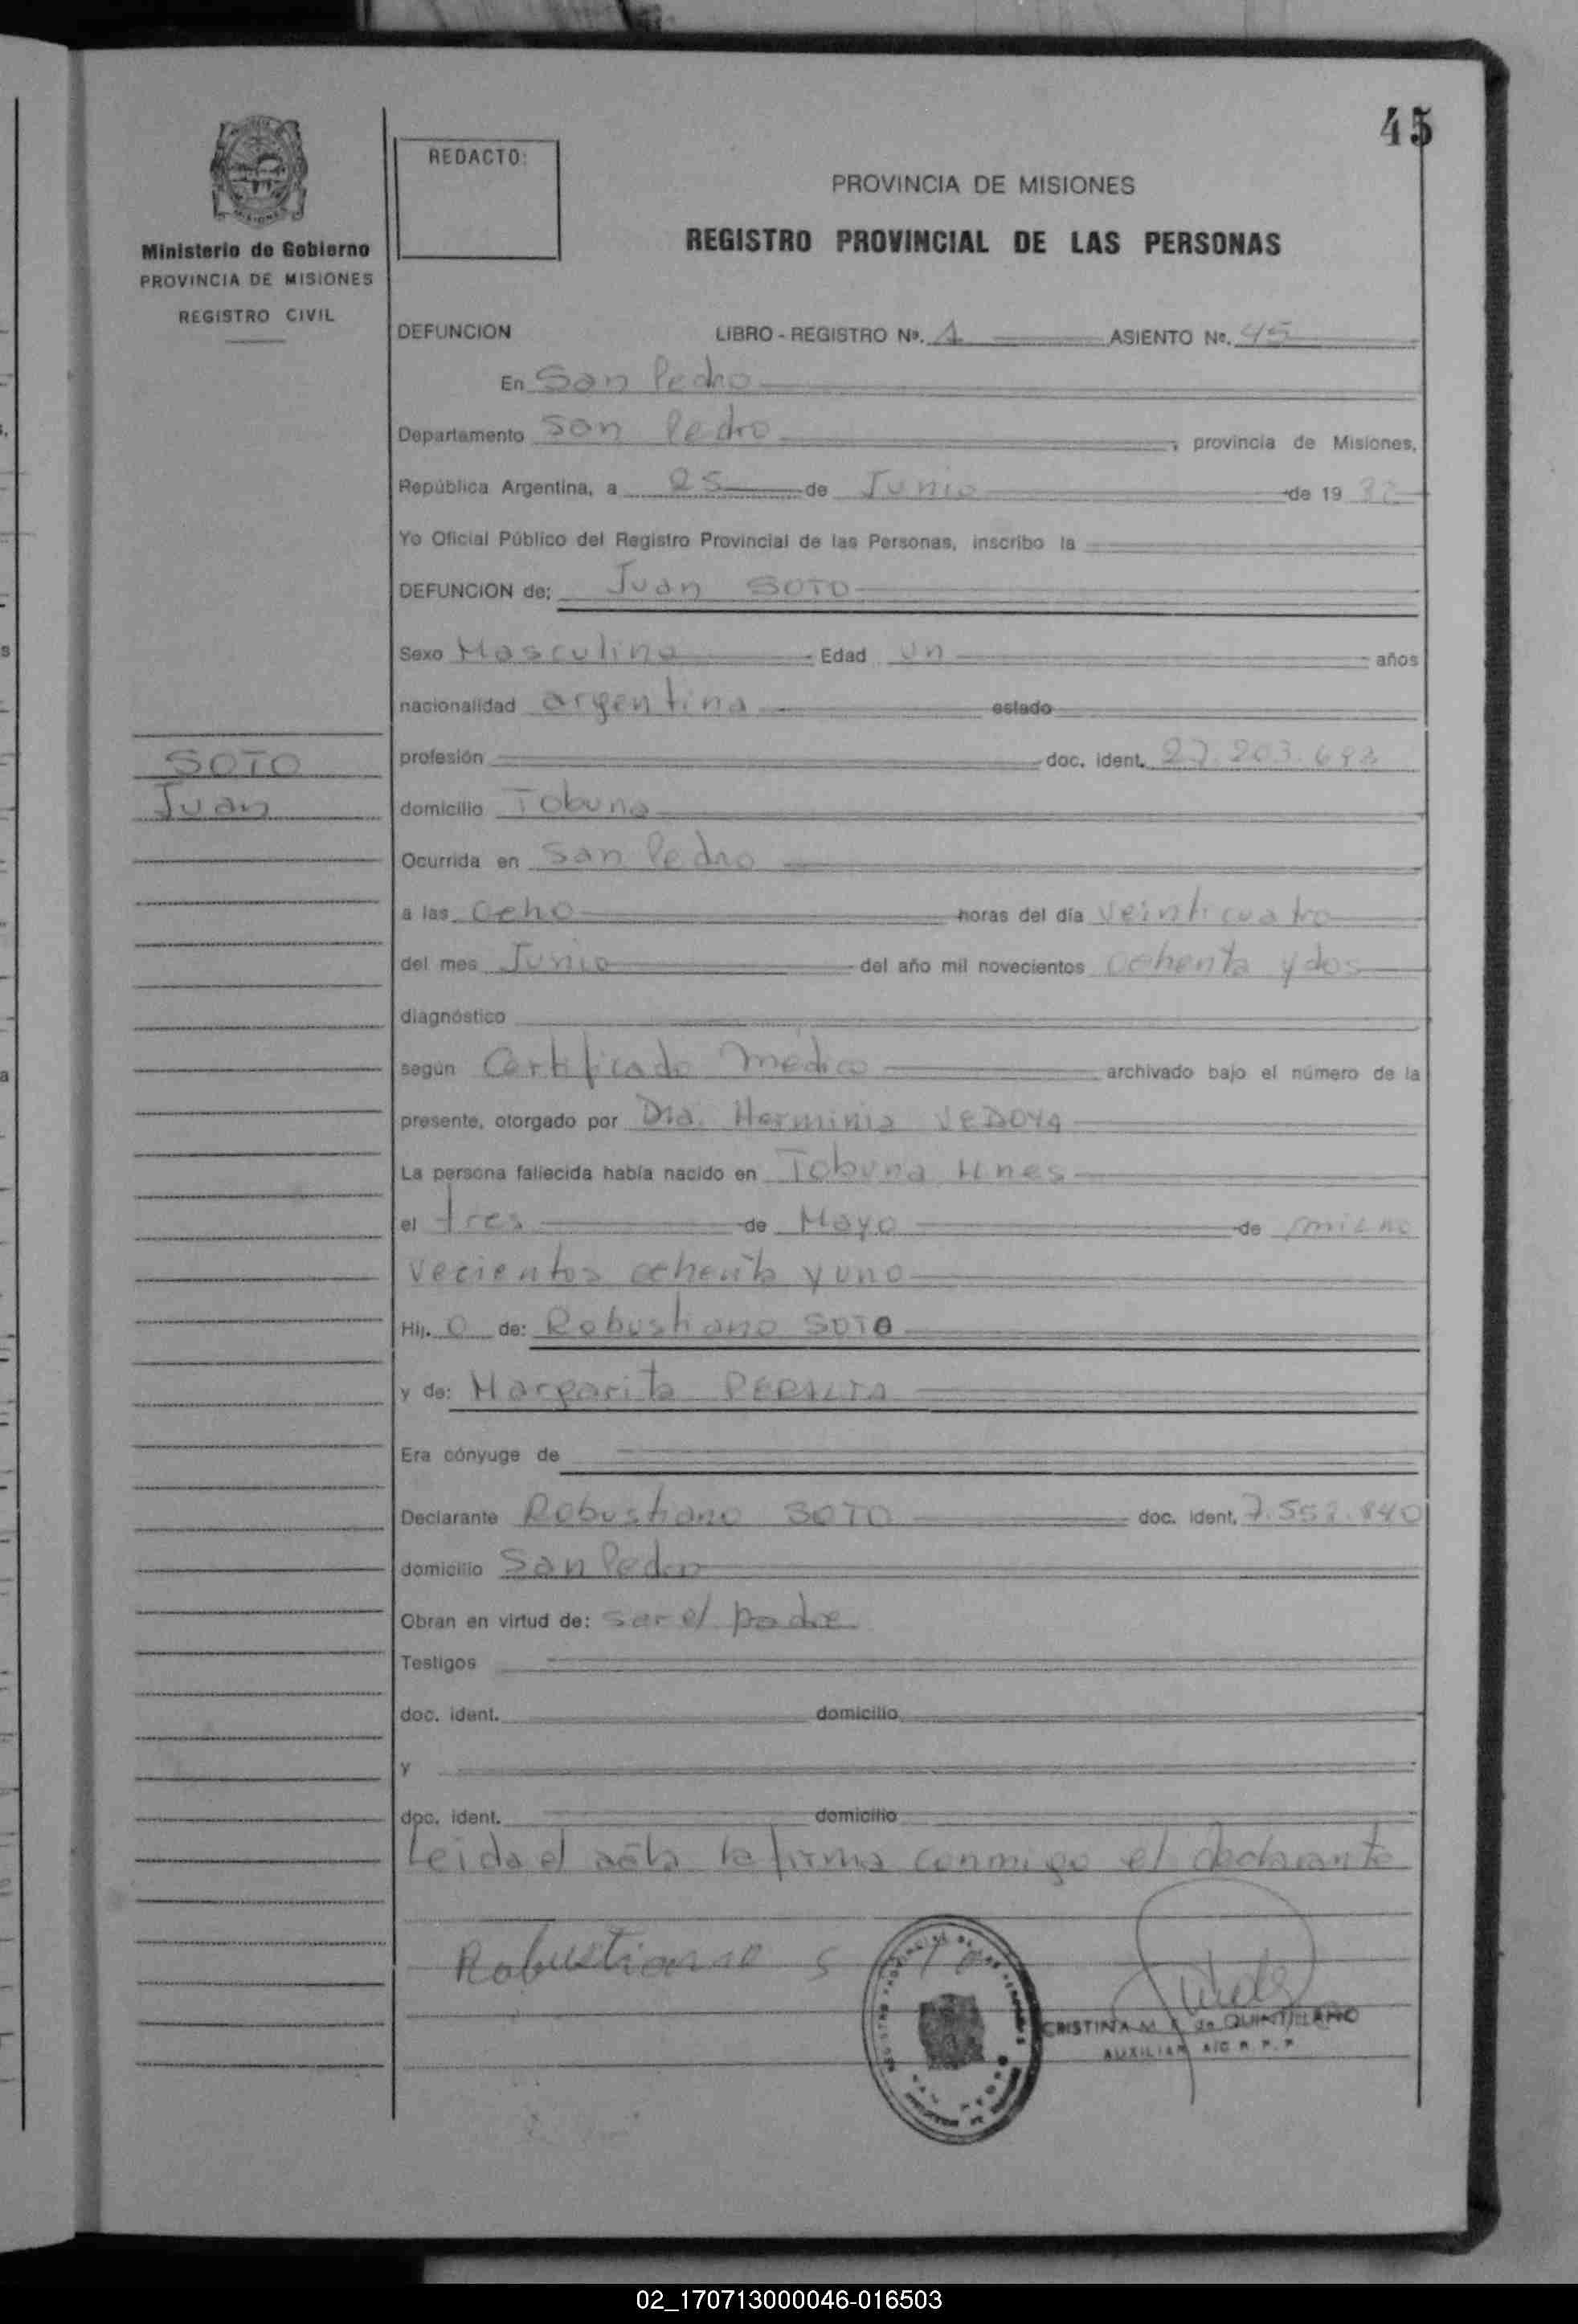 45
REDACTO:
PROVINCIA DE MISIONES
REGISTRO PROVINCIAL DE LAS PERSONAS
Ministerio de Gobierno
PROVINCIA DE MISIONES
REGISTRO CIVIL
DEFUNCION LIBRO - REGISTRO Nº. 1 ASIENTO Nº. 45
En San Pedro
Departamento San Pedro, provincia de Misiones,
República Argentina, a 25 de Junio de 19 82
Yo Oficial Público del Registro Provincial de las Personas, inscribo la
DEFUNCION de: Juan SOTO
Sexo Masculino Edad un años
nacionalidad argentina estado
SOTO
Juan
profesión doc. ident. 27.203.693
domicilio Tobuna
Ocurrida en San Pedro
a las ocho horas del día veinticuatro
del mes Junio del año mil novecientos ochenta y dos
diagnóstico
según Certificado médico archivado bajo el número de la
presente, otorgado por Dra. Herminia VEDOYA
La persona fallecida había nacido en Tobuna Mnes
el tres de Mayo de mil no
vecientos ochenta y uno
Hij. o de: Robustiano SOTO
y de: Margarita PERALTA
Era cónyuge de
Declarante Robustiano SOTO doc. ident. 7.552.840
domicilio San Pedro
Obran en virtud de: ser el padre
Testigos
doc. ident. domicilio
y
doc. ident. domicilio
Leida el acta la firma conmigo el declarante
Robustiano S
CRISTINA M. de QUINTELANO
AUXILIAR A/C R. P. P.
02_170713000046-016503